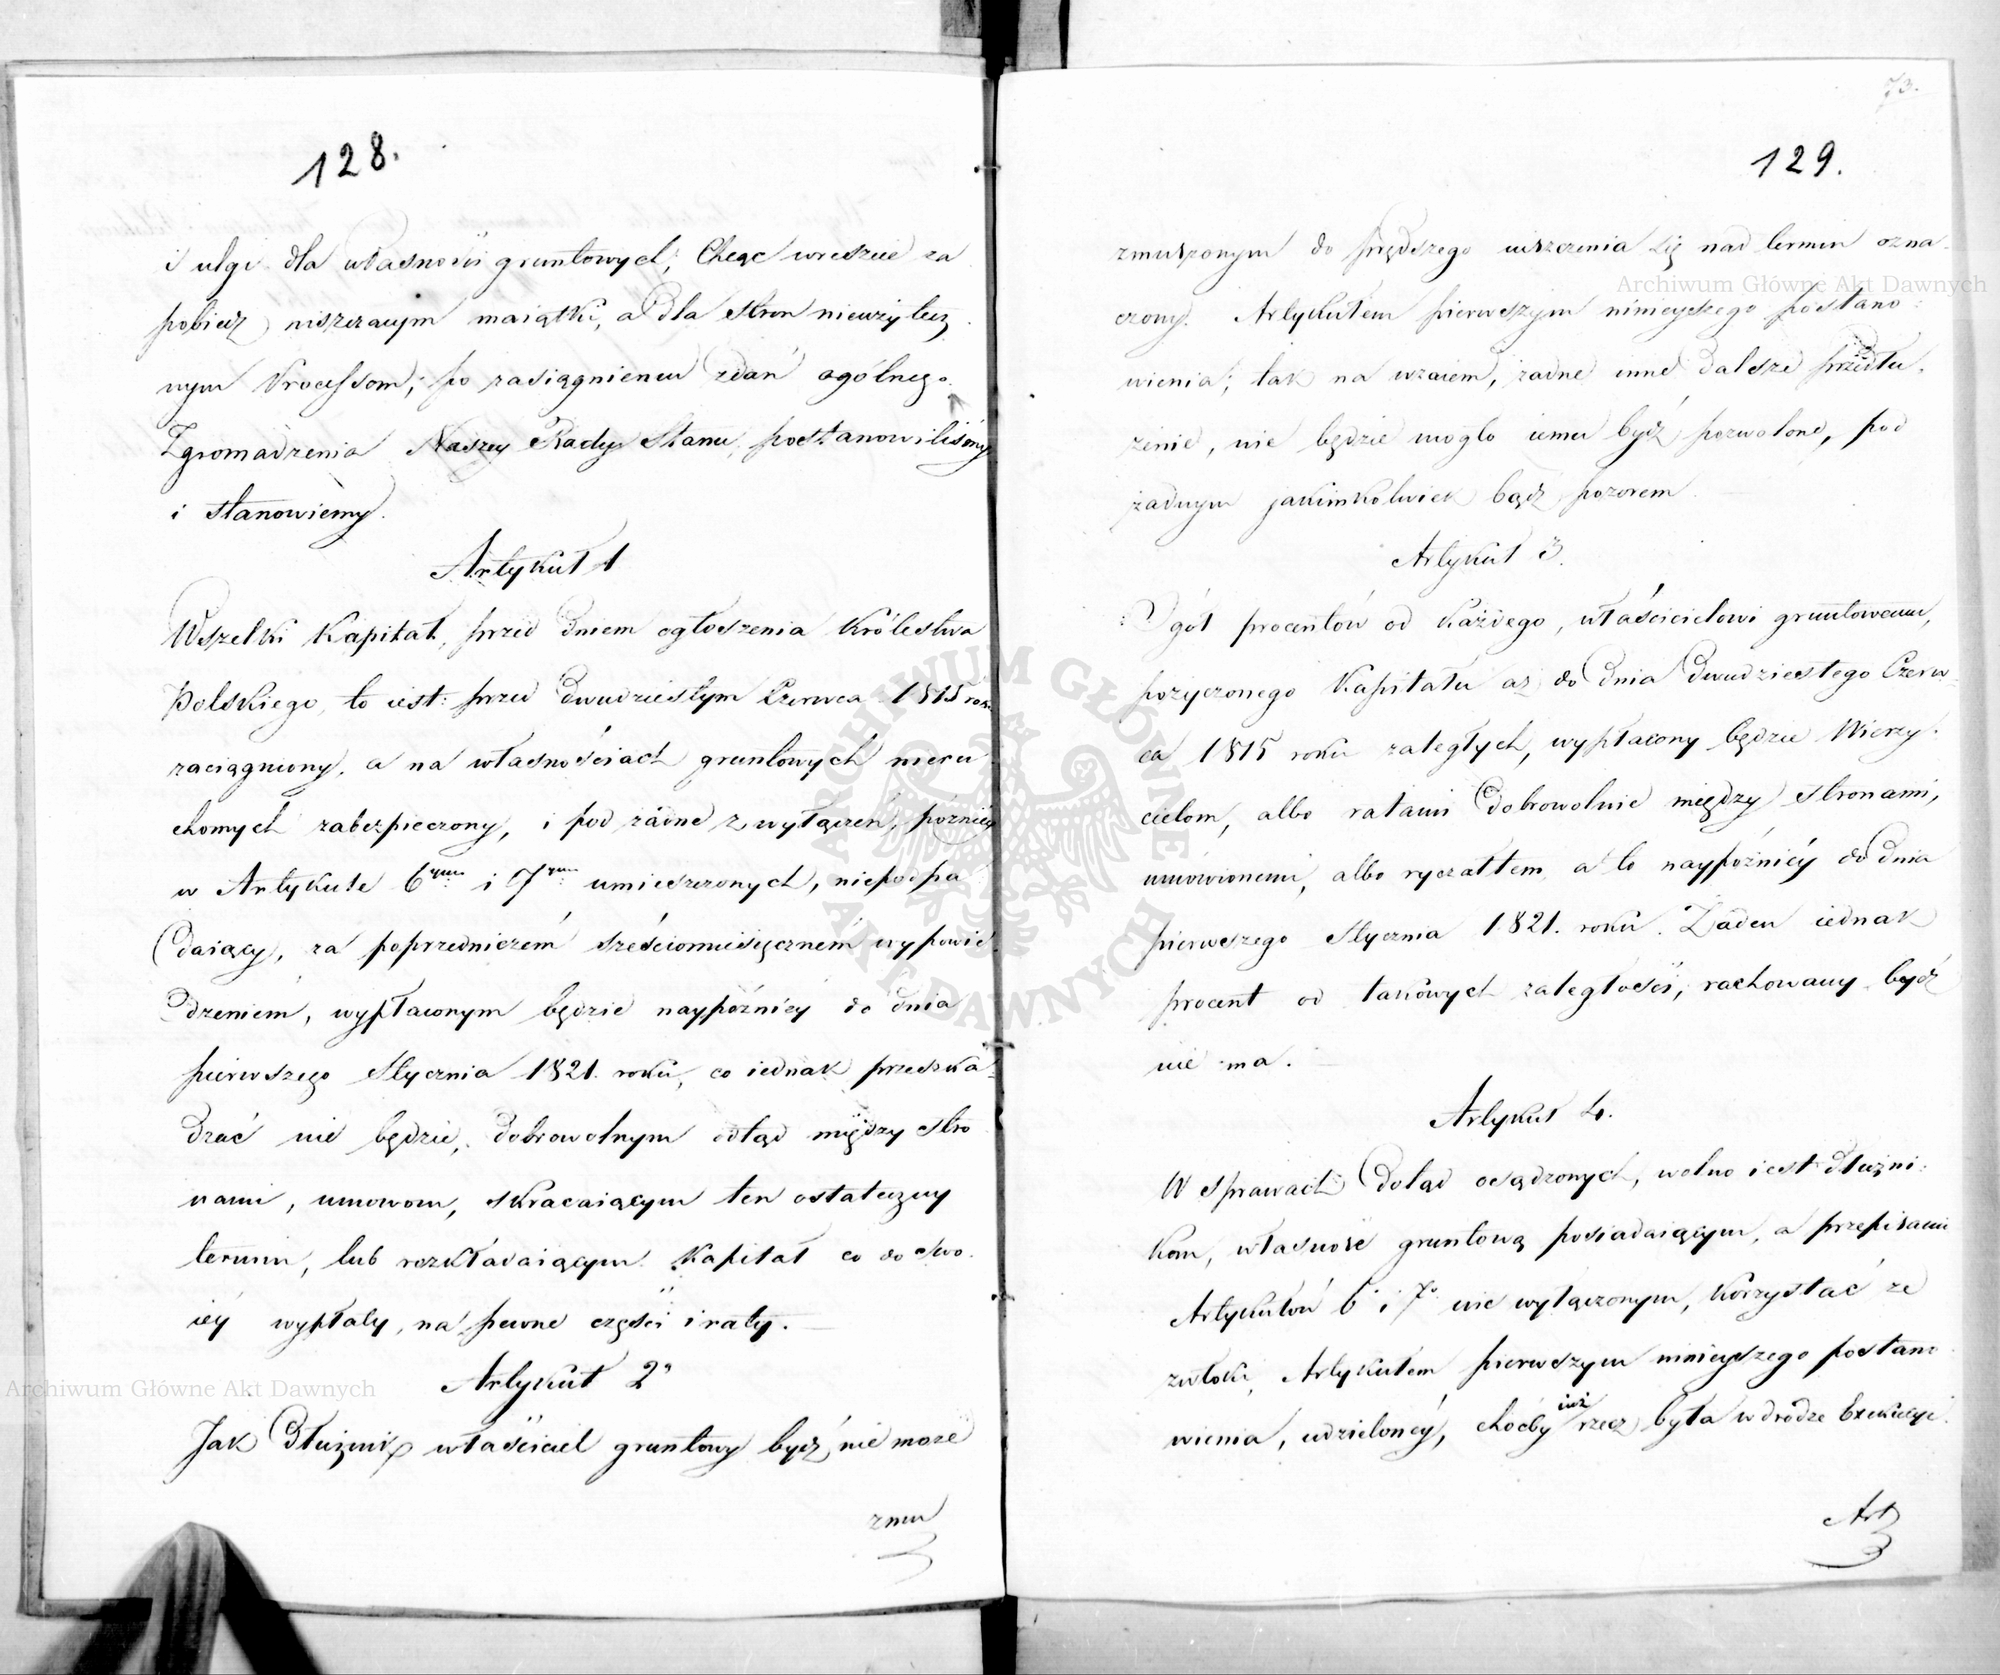 128.
i ulgi dla własności gruntowych; Chcąc wreszcie za
pobiedz niszczącym maiątki, a dla stron nieużytecz
nym Processom; po zasiągnieniu zdań ogólnego
Zgromadzenia Naszey Rady Stanu, postanowiliśmy
i stanowiemy.
Artykuł 1
Wszelki Kapitał, przed dniem ogłoszenia Królestwa
Polskiego, to iest: przed dwudziestym Czerwca 1815 roku
zaciągniony, a na własnościach gruntowych nieru
chomych zabezpieczony, i pod żadne z wyłączeń, pózniey
w Artykule 6tym i 7mym umieszczonych, niepodpa
daiący, za poprzedniczém sześciomiesięcznem wypowie
dzeniem, wypłaconym będzie naypóźniéy do dnia
pierwszego Stycznia 1821. roku, co iednak przeszka-
dzać nie będzie, dobrowolnym odtąd między stro
nami, umowom, skracaiącym ten ostateczny
termin, lub rozkładaiącym Kapitał co do swo.
iéy wypłaty, na pewne części i raty.
Artykuł 2°
Jak dłużnik właściciel gruntowy bydź nie może
zmu
73.
129.
zmuszonym do prędszego uiszczenia się nad termin ozna-
czony. Artykułem pierwszym ninieyszego postano:
wienia; tak na wzaiem, żadne inne dalsze przedłu.
żenie, nie będzie mogło iemu bydź pozwolone, pod
żadnym jakimkolwiek bądź pozorem
Artykuł 3.
Ogół procentów od każdego, właścicielowi gruntowemu,
pożyczonego Kapitału aż do dnia dwudziestego Czerw-
ca 1815 roku zaległych, wypłacony będzie Wierzy.
cielom, albo ratami dobrowolnie między stronami,
umówionemi, albo ryczałtem, a to naypóźniéy do dnia
pierwszego Stycznia 1821. roku. Żaden iednak
procent od takowych zaległości, rachowany bydź
nie ma.
Artykuł 4.
W sprawach dotąd osądzonych, wolno iest dłużni:
kom, własność gruntową posiadaiącym, a przepisami
Artykułów 6° i 7° nie wyłączonym, korzystać ze
zwłoki, Artykułem pierwszym ninieyszego postano
wienia, udzielonéy, choćby iuż rzecz była w drodze Exekucyi.
Art
Archiwum Główne Akt Dawnych
Archiwum Główne Akt Dawnych
ARCHIWUM GŁÓWNE AKT DAWNYCH